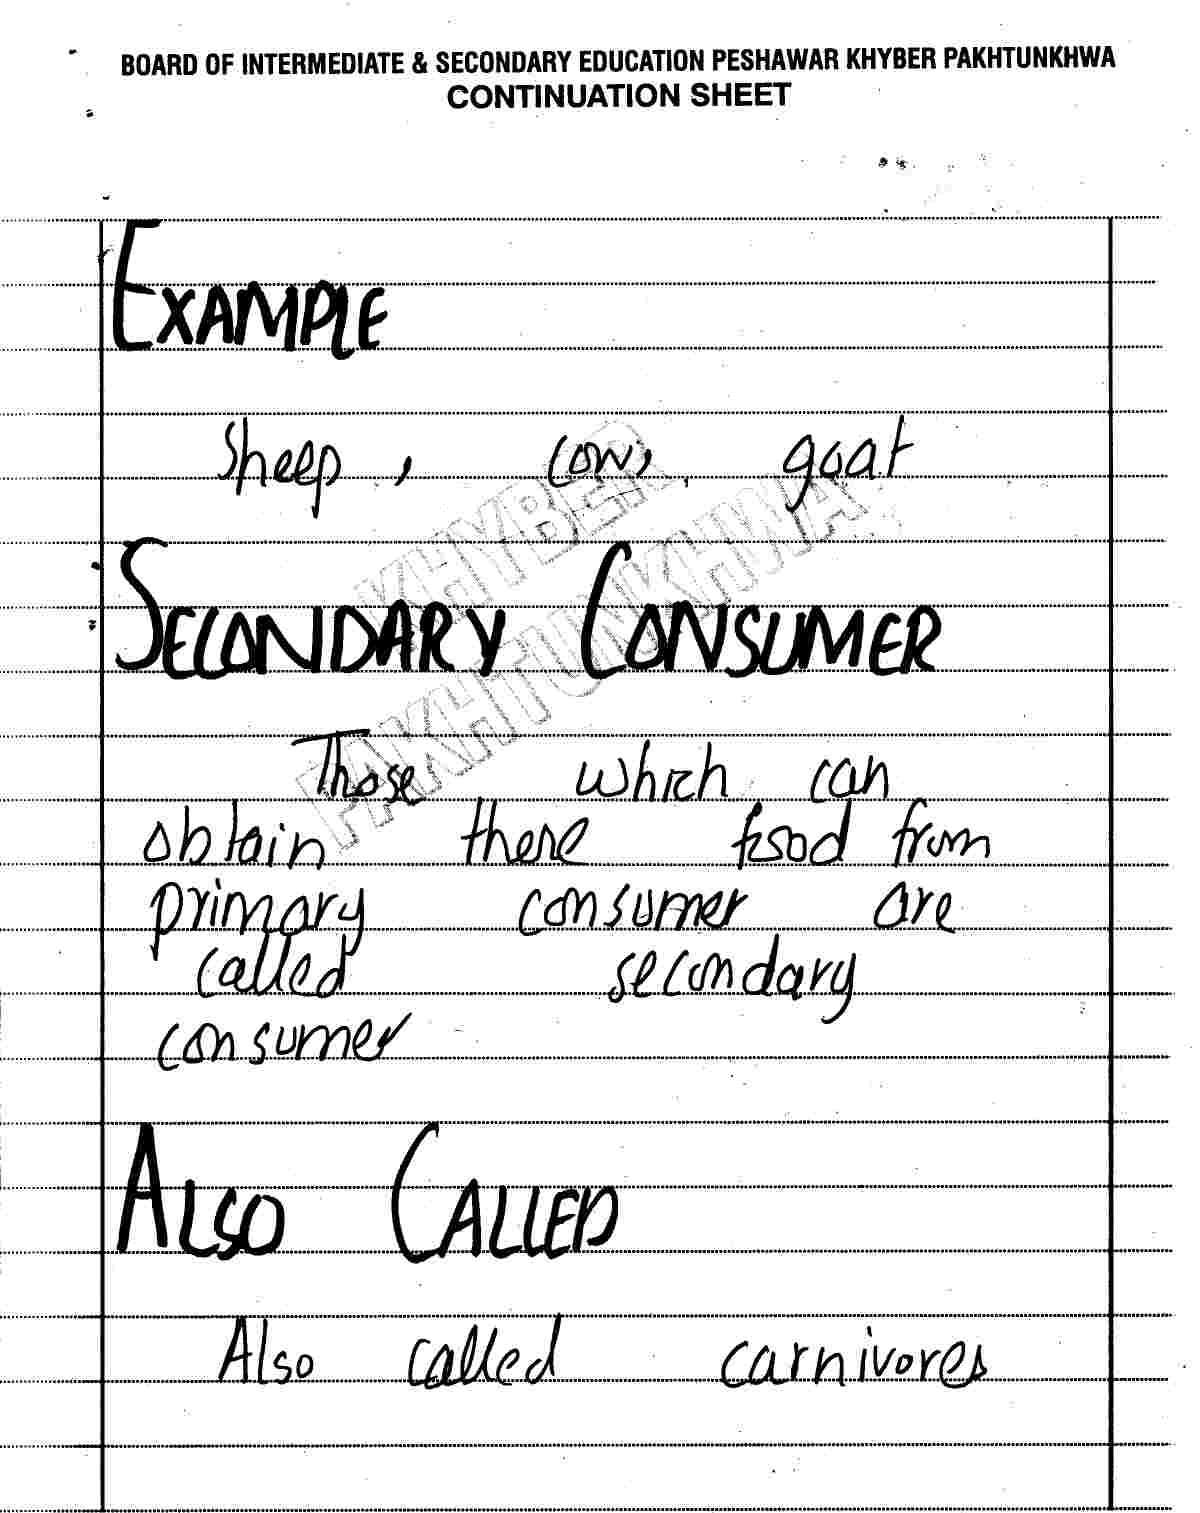 BOARD OF INTERMEDIATE & SECONDARY EDUCATION PESHAWAR KHYBER PAKHTUNKHWA
CONTINUATION SHEET
EXAMPLE
Sheep , cow, goat
KHYBER
PAKHTUNKHWA
SECONDARY CONSUMER
Those which can
obtain there food from
primary consumer are
called secondary
consumer
ALSO CALLED
Also called carnivores